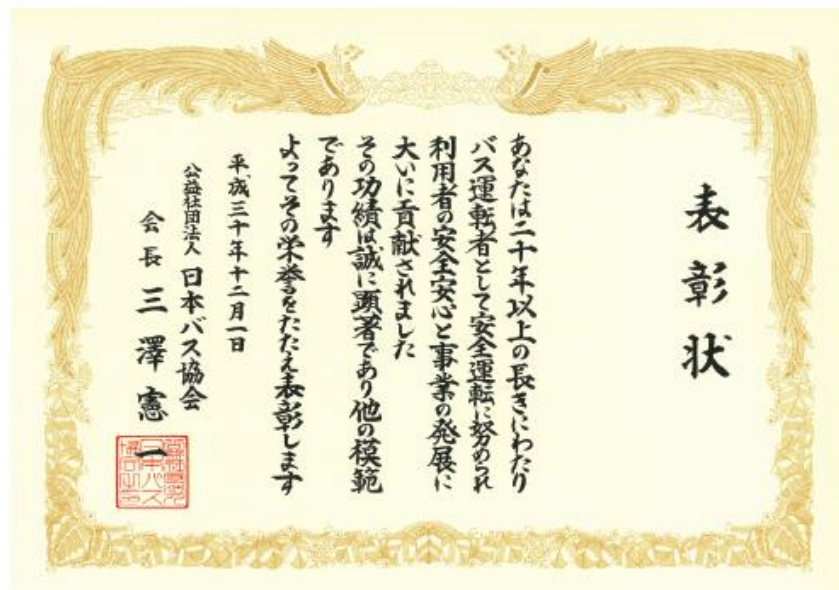 表彰状
あなたは二十年以上の長きにわたり
バス運転者として安全運転に努められ
利用者の安全安心と事業の発展に
大いに貢献されました
その功績は誠に顕著であり他の模範
であります
よってその栄誉をたたえ表彰します
平成三十年十二月一日
公益社団法人 日本バス協会
会長 三澤憲一